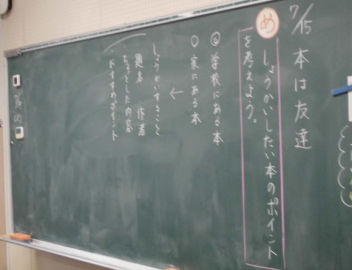 7/15 本は友達
め しょうかいしたい本のポイント
を考えよう。
㋐ 学校にある本
㋑ 家にある本
↓
しょうかいすること
題名 作者
ちょっとした内容
おすすめのポイント